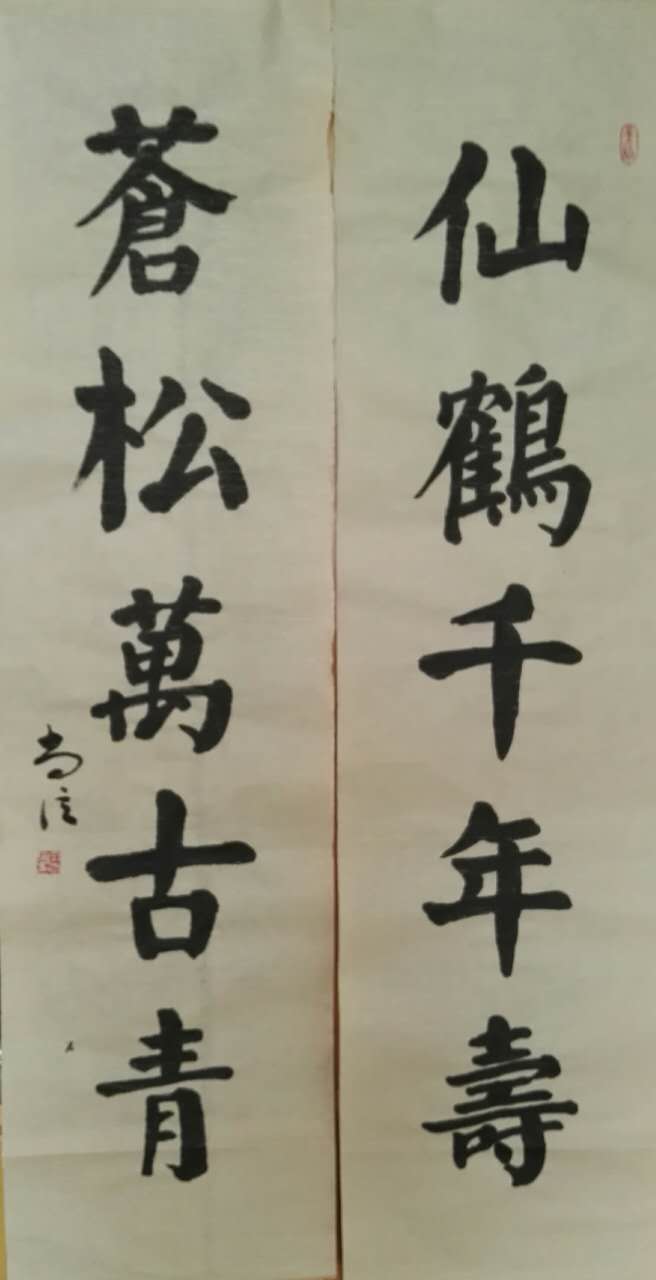 仙鶴千年壽
蒼松萬古青
尚信